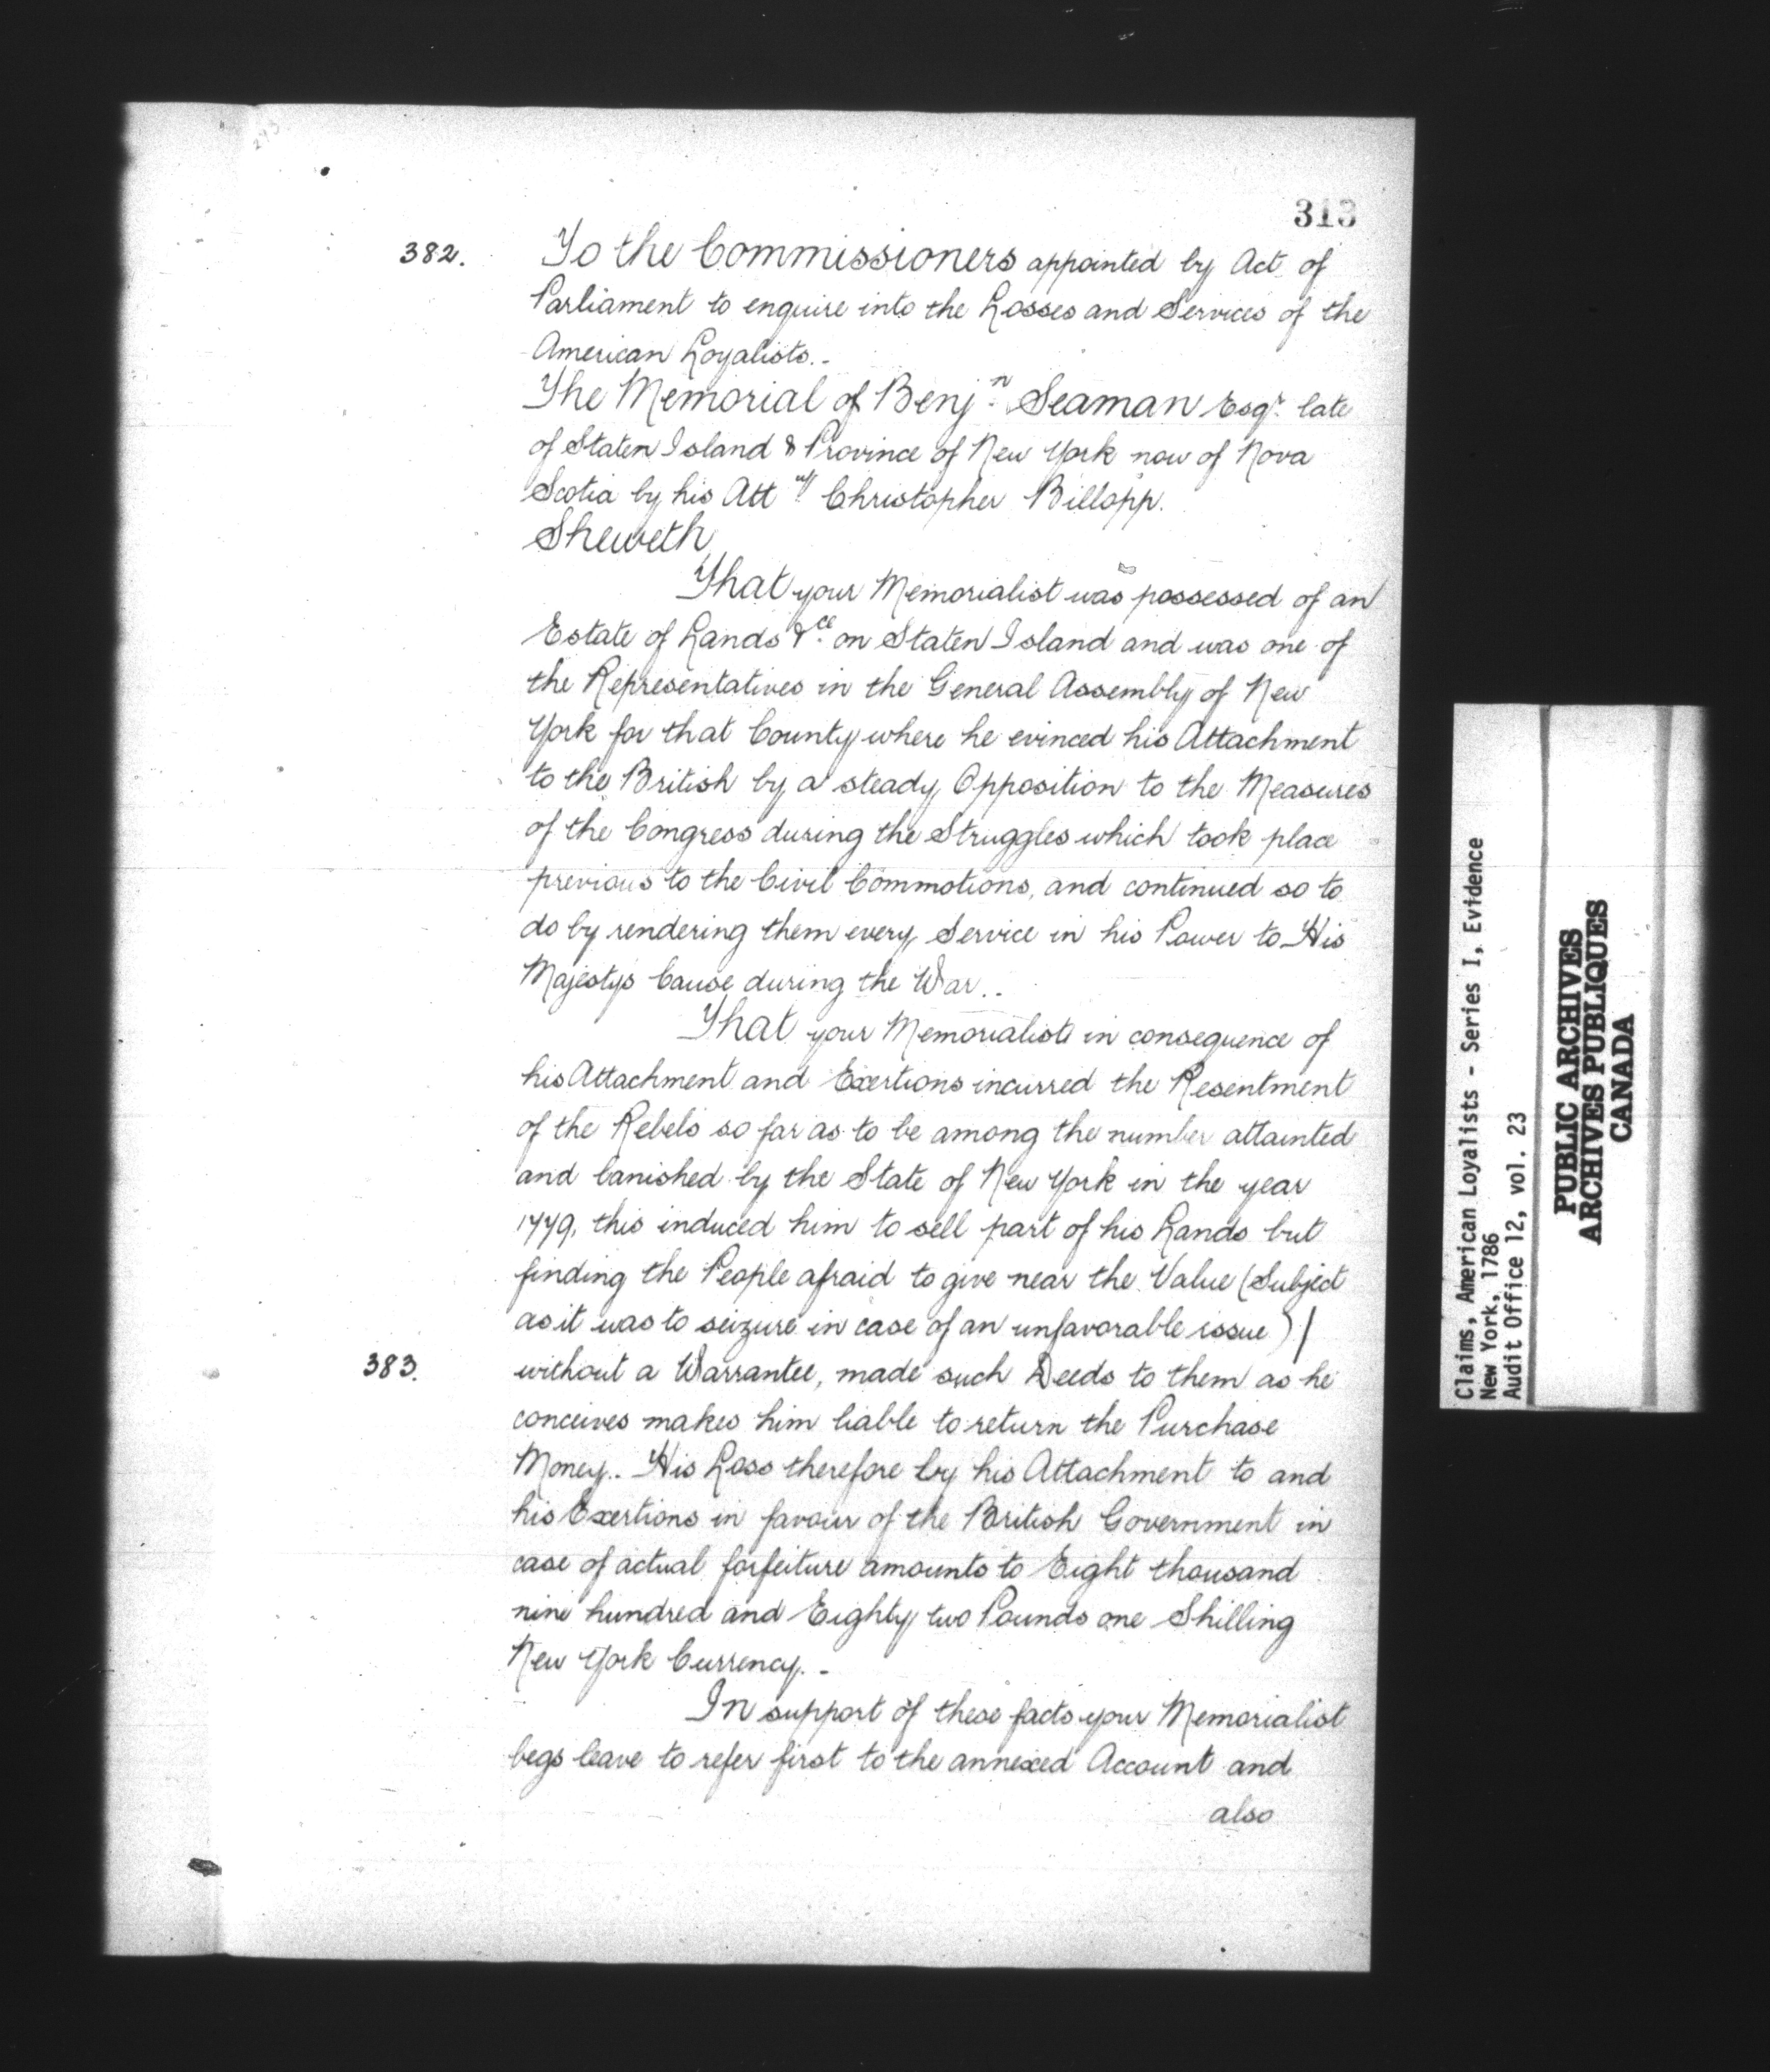 313
382. To the Commissioners appointed by Act of
Parliament to enquire into the Losses and Services of the
American Loyalists.-
The Memorial of Benjn. Seaman Esqr. late
of Staten Island & Province of New York now of Nova
Scotia by his Atty. Christopher Billopp.
Sheweth
That your Memorialist was possessed of an
Estate of Lands &ce. on Staten Island and was one of
the Representatives in the General Assembly of New
York for that County where he evinced his Attachment
to the British by a steady Opposition to the Measures
of the Congress during the Struggles which took place
previous to the Civil Commotions, and continued so to
do by rendering them every Service in his Power to His
Majestys Cause during the War..
That your Memorialist in consequence of
his Attachment and Exertions incurred the Resentment
of the Rebels so far as to be among the number attainted
and banished by the State of New York in the year
1779, this induced him to sell part of his Lands but
finding the People afraid to give near the Value (Subject
as it was to seizure in case of an unfavorable issue) /
383. without a Warrantee, made such Deeds to them as he
conceives makes him liable to return the Purchase
Money.. His Loss therefore by his Attachment to and
his Exertions in favour of the British Government in
case of actual forfeiture amounts to Eight thousand
nine hundred and Eighty two Pounds one Shilling
New York Currency.-
In support of these facts your Memorialist
begs leave to refer first to the annexed Account and
also
Claims, American Loyalists - Series I, Evidence
New York, 1786
Audit Office 12, vol. 23
PUBLIC ARCHIVES
ARCHIVES PUBLIQUES
CANADA